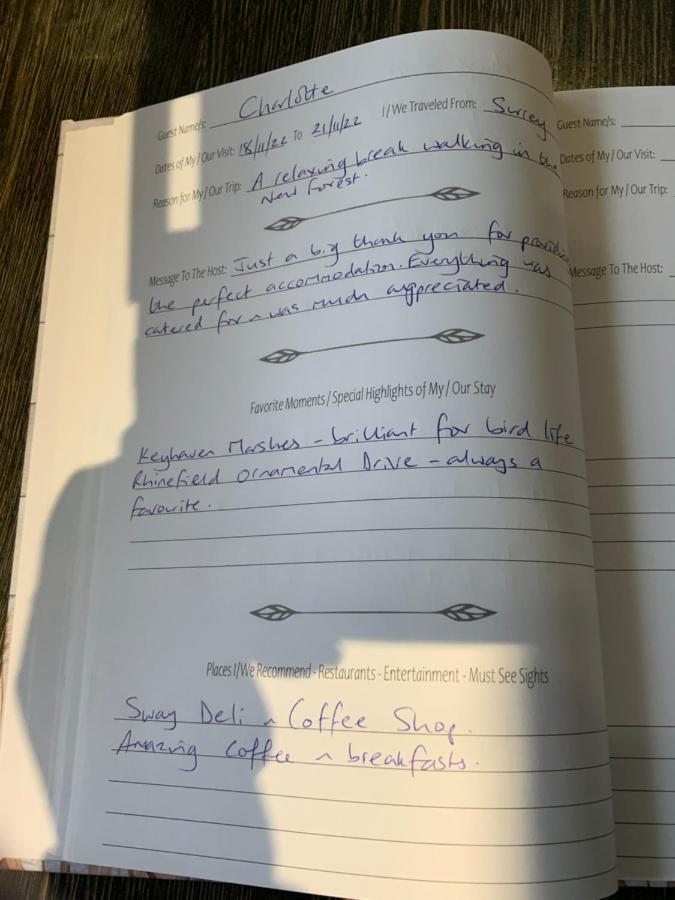 Guest Name/s: Charlotte
Dates of My / Our Visit: 18/11/22 To 21/11/22 I / We Traveled From: Surrey
Reason for My / Our Trip: A relaxing break walking in the
New Forest.
Message To The Host: Just a big thank you for providing
the perfect accommodation. Everything was
catered for & was much appreciated.
Favorite Moments / Special Highlights of My / Our Stay
Keyhaven Marshes - brilliant for bird life
Rhinefield Ornamental Drive - always a
favourite.
Places I/We Recommend - Restaurants - Entertainment - Must See Sights
Sway Deli & Coffee Shop.
Amazing coffee & breakfasts.
Guest Name/s:
Dates of My / Our Visit:
Reason for My / Our Trip:
Message To The Host: